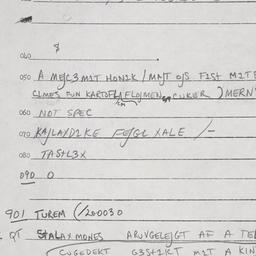 040
8
050 A MEJC3M1T HON1K / MAJT OJS F1ST M1TE
CLMES FUN KARTOFLAFLOJMEN, CUKER ) MERN
060 NOT SPEC
070 KAJLAXD1KE FEJGL XALE /-
080 TASTL3X
090 0
901 TUREM (/200030
QT STALAXMONES ARUVGELEJGT AF A TE
CUGEDEKT G3ST1KT M1T A KIN